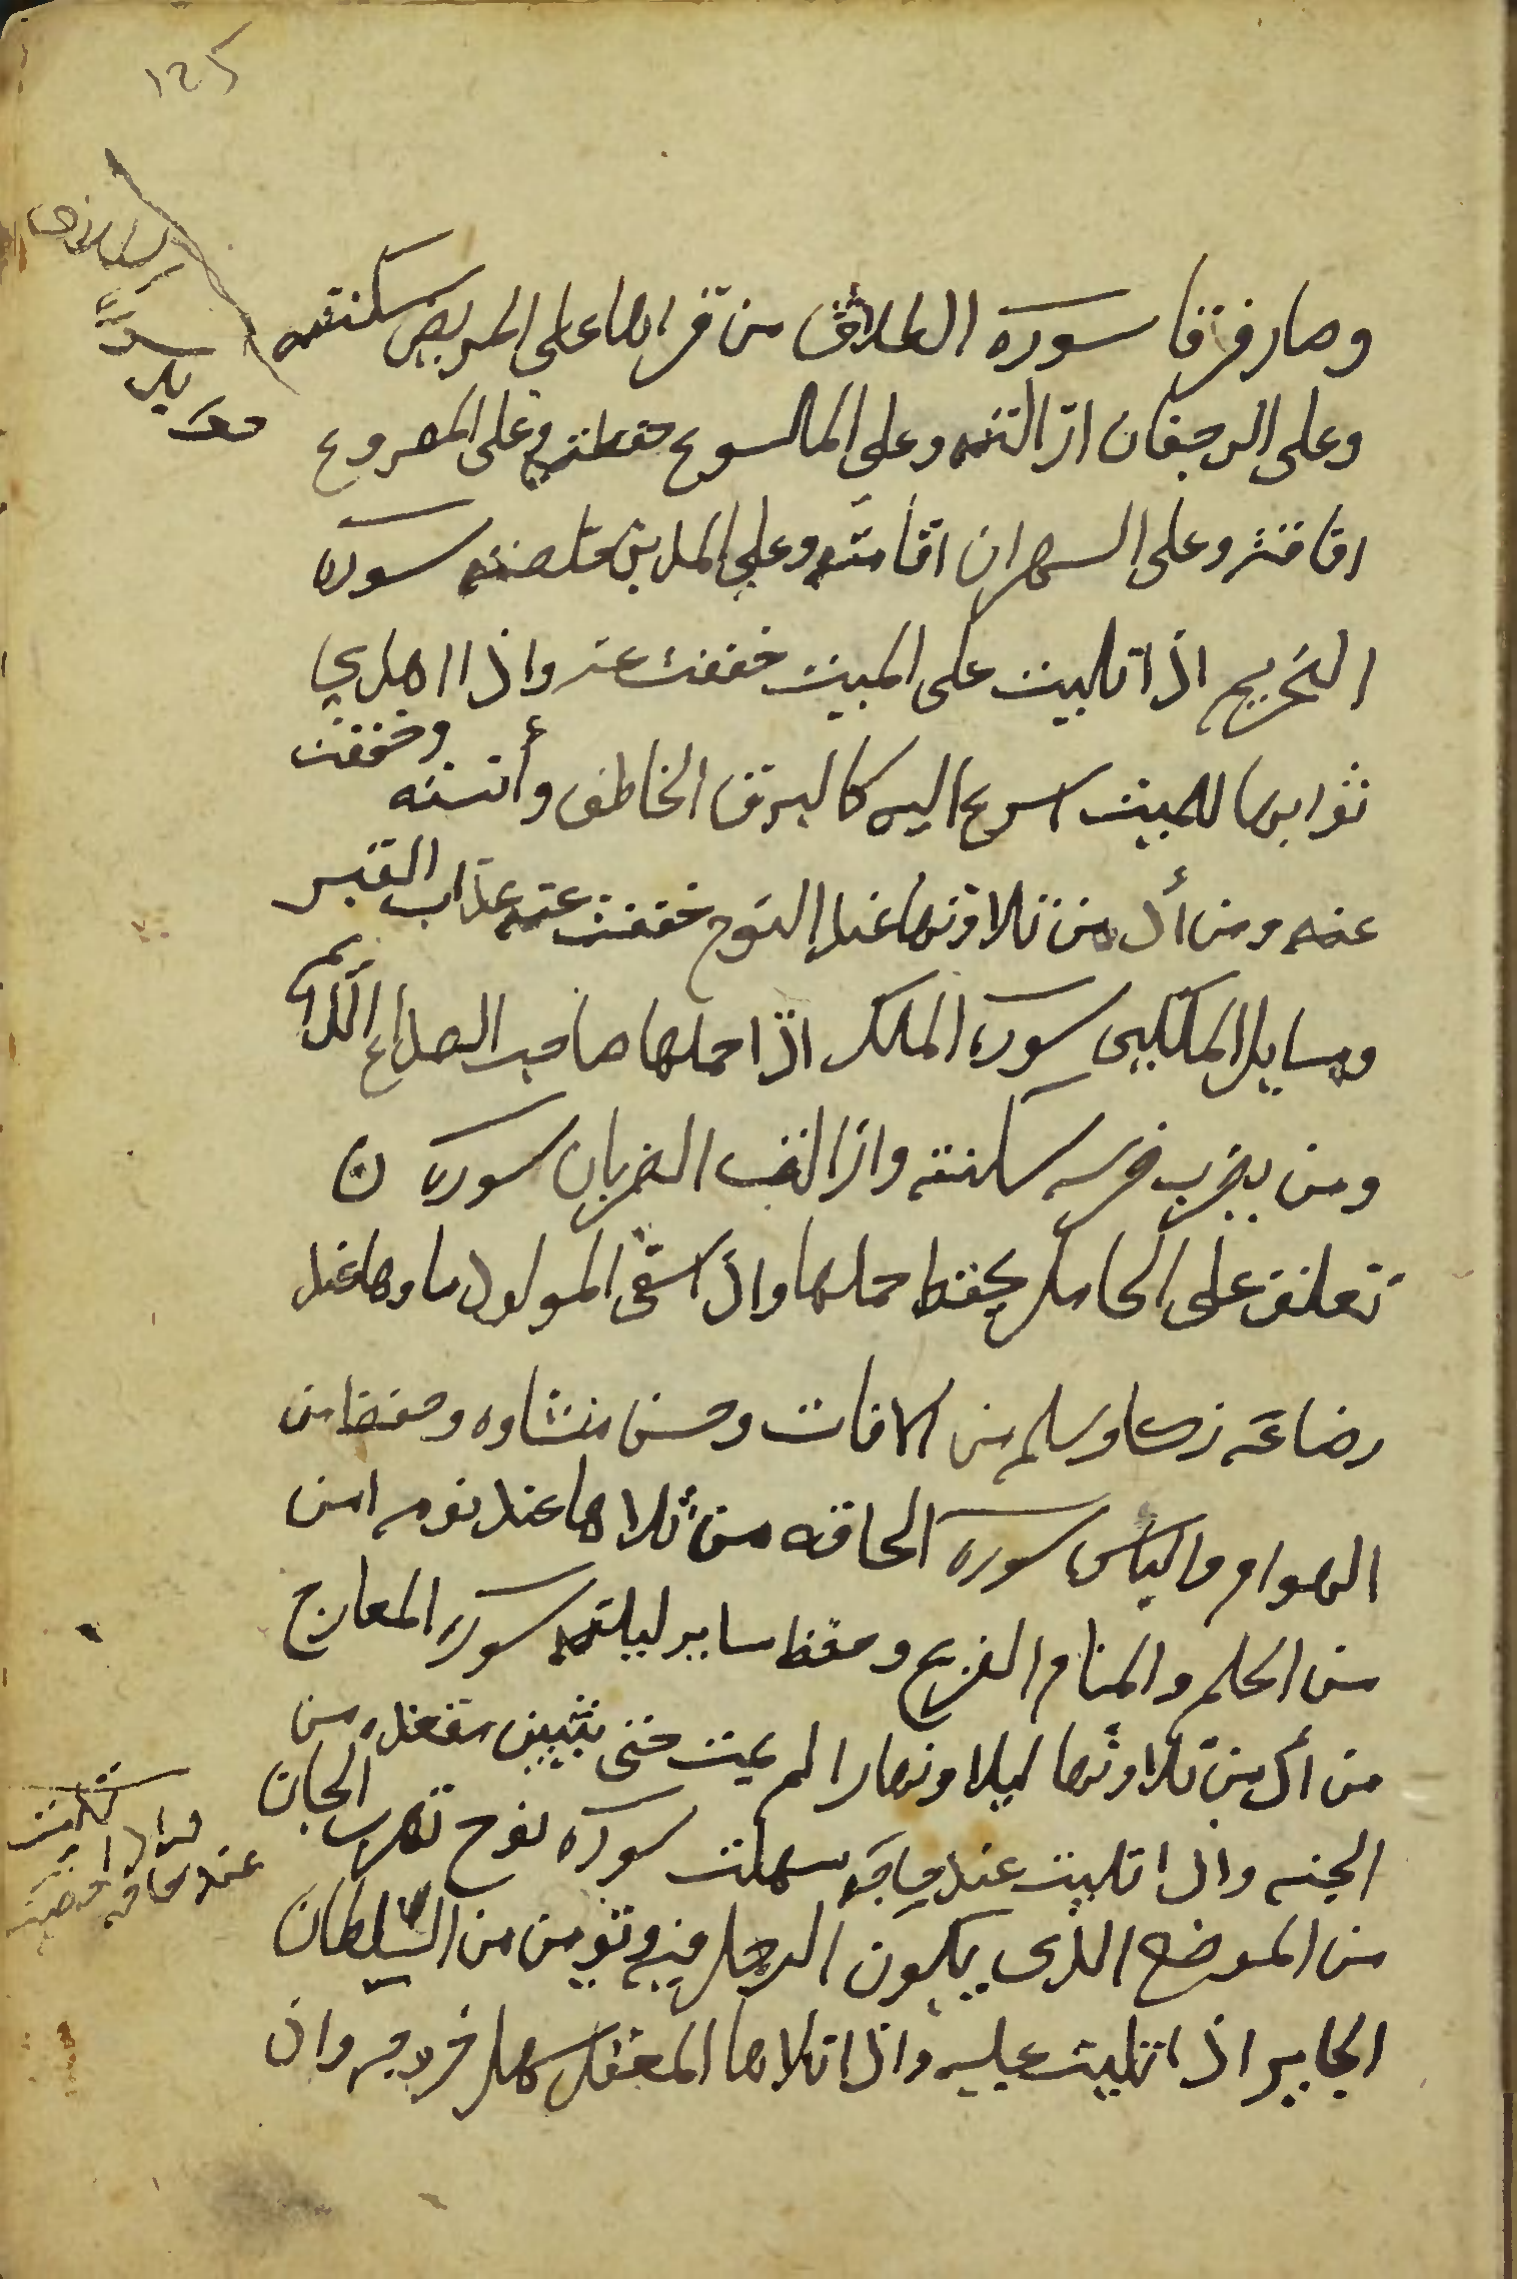 ١٢٥
وصار فرقا سورة الطلاق من قراها على المريض سكنته
وعلى الرجفان ازالته وعلى المالسوع حفظته وعلى المصروع
افاقته وعلى السهران اقامته وعلى المدين خلصته سورة
التحريم اذا تليت على الميت خففت عنه واذا اهدي
ثوابها للميت اسرع اليه كالبرق الخاطف وأنسته وخففت
عنه ومن أد من تلاوتها عند النوح خففت عنه عذاب القبر
وسايل الملكين سورة الملك اذا حملها صاحب الصداع الدايم
ومن يضرب ضرسه سكنته وازالت الضربان سورة ن
تعلق على الحامل يحفظ حملها واذ اسقى المولود ماوها عند
رضاعه زكا وسلم من الافات وحسن منشاوه وحفظ من
الهوام والياس سورة الحاقه من تلاها عند نومه امن
من الحلم والمنام الفزيع وحفظ ساير ليلته سورة المعارج
من أد من تلاوتها ليلا ونهارا لم يمت حتى يتبين مقعده من
الجنه واذا تليت عند حاجه سهلت سورة نوح تهرب الجان
من الموضع الذي يكون الرجل فيه وتومن من السلطان
الجاير اذا تليت عليه واذا تلاها المعتقل سهل خروجه وان